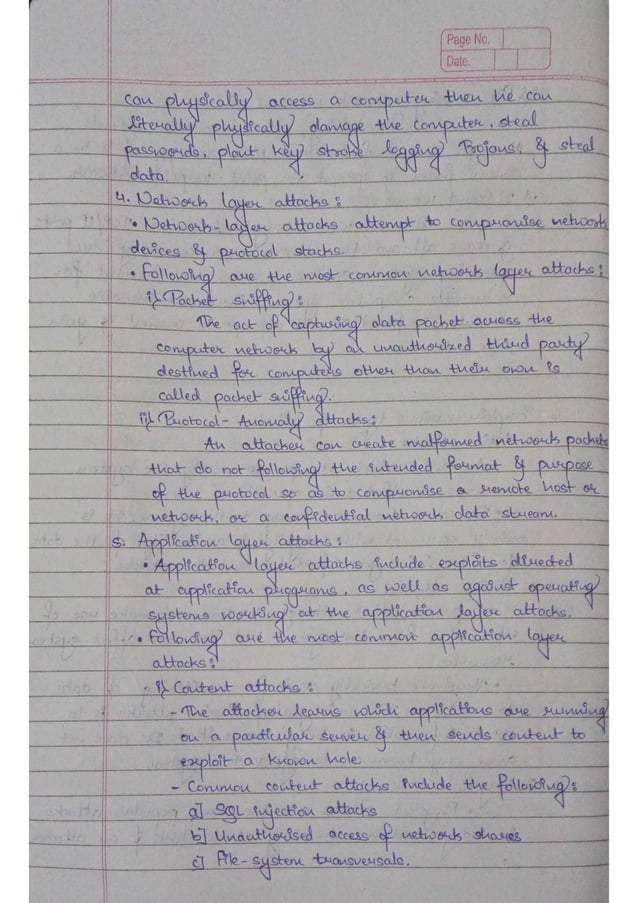 Page No.
Date.
can physically access a computer then he can
literally physically damage the computer, steal
passwords, plant key stroke logging Trojans, & steal
data.
4. Network layer attacks:
• Network-layer attacks attempt to compromise network
devices & protocol stacks.
• Following are the most common network layer attacks:
i) Packet sniffing:
The act of capturing data packet across the
computer network by an unauthorized third party
destined for computers other than their own is
called packet sniffing.
ii) Protocol-Anomaly attacks:
An attacker can create malformed network packets
that do not following the intended format & purpose
of the protocol so as to compromise a remote host or
network, or a confidential network data stream.
5. Application layer attacks:
• Application layer attacks include exploits directed
at application programs, as well as against operating
systems working at the application layer attacks.
• Following are the most common application layer
attacks:
i) Content attacks:
- The attacker learns which applications are running
on a particular server & then sends content to
exploit a known hole.
- Common content attacks include the following:
a] SQL injection attacks
b] Unauthorised access of network shares
c] File-system transversals.